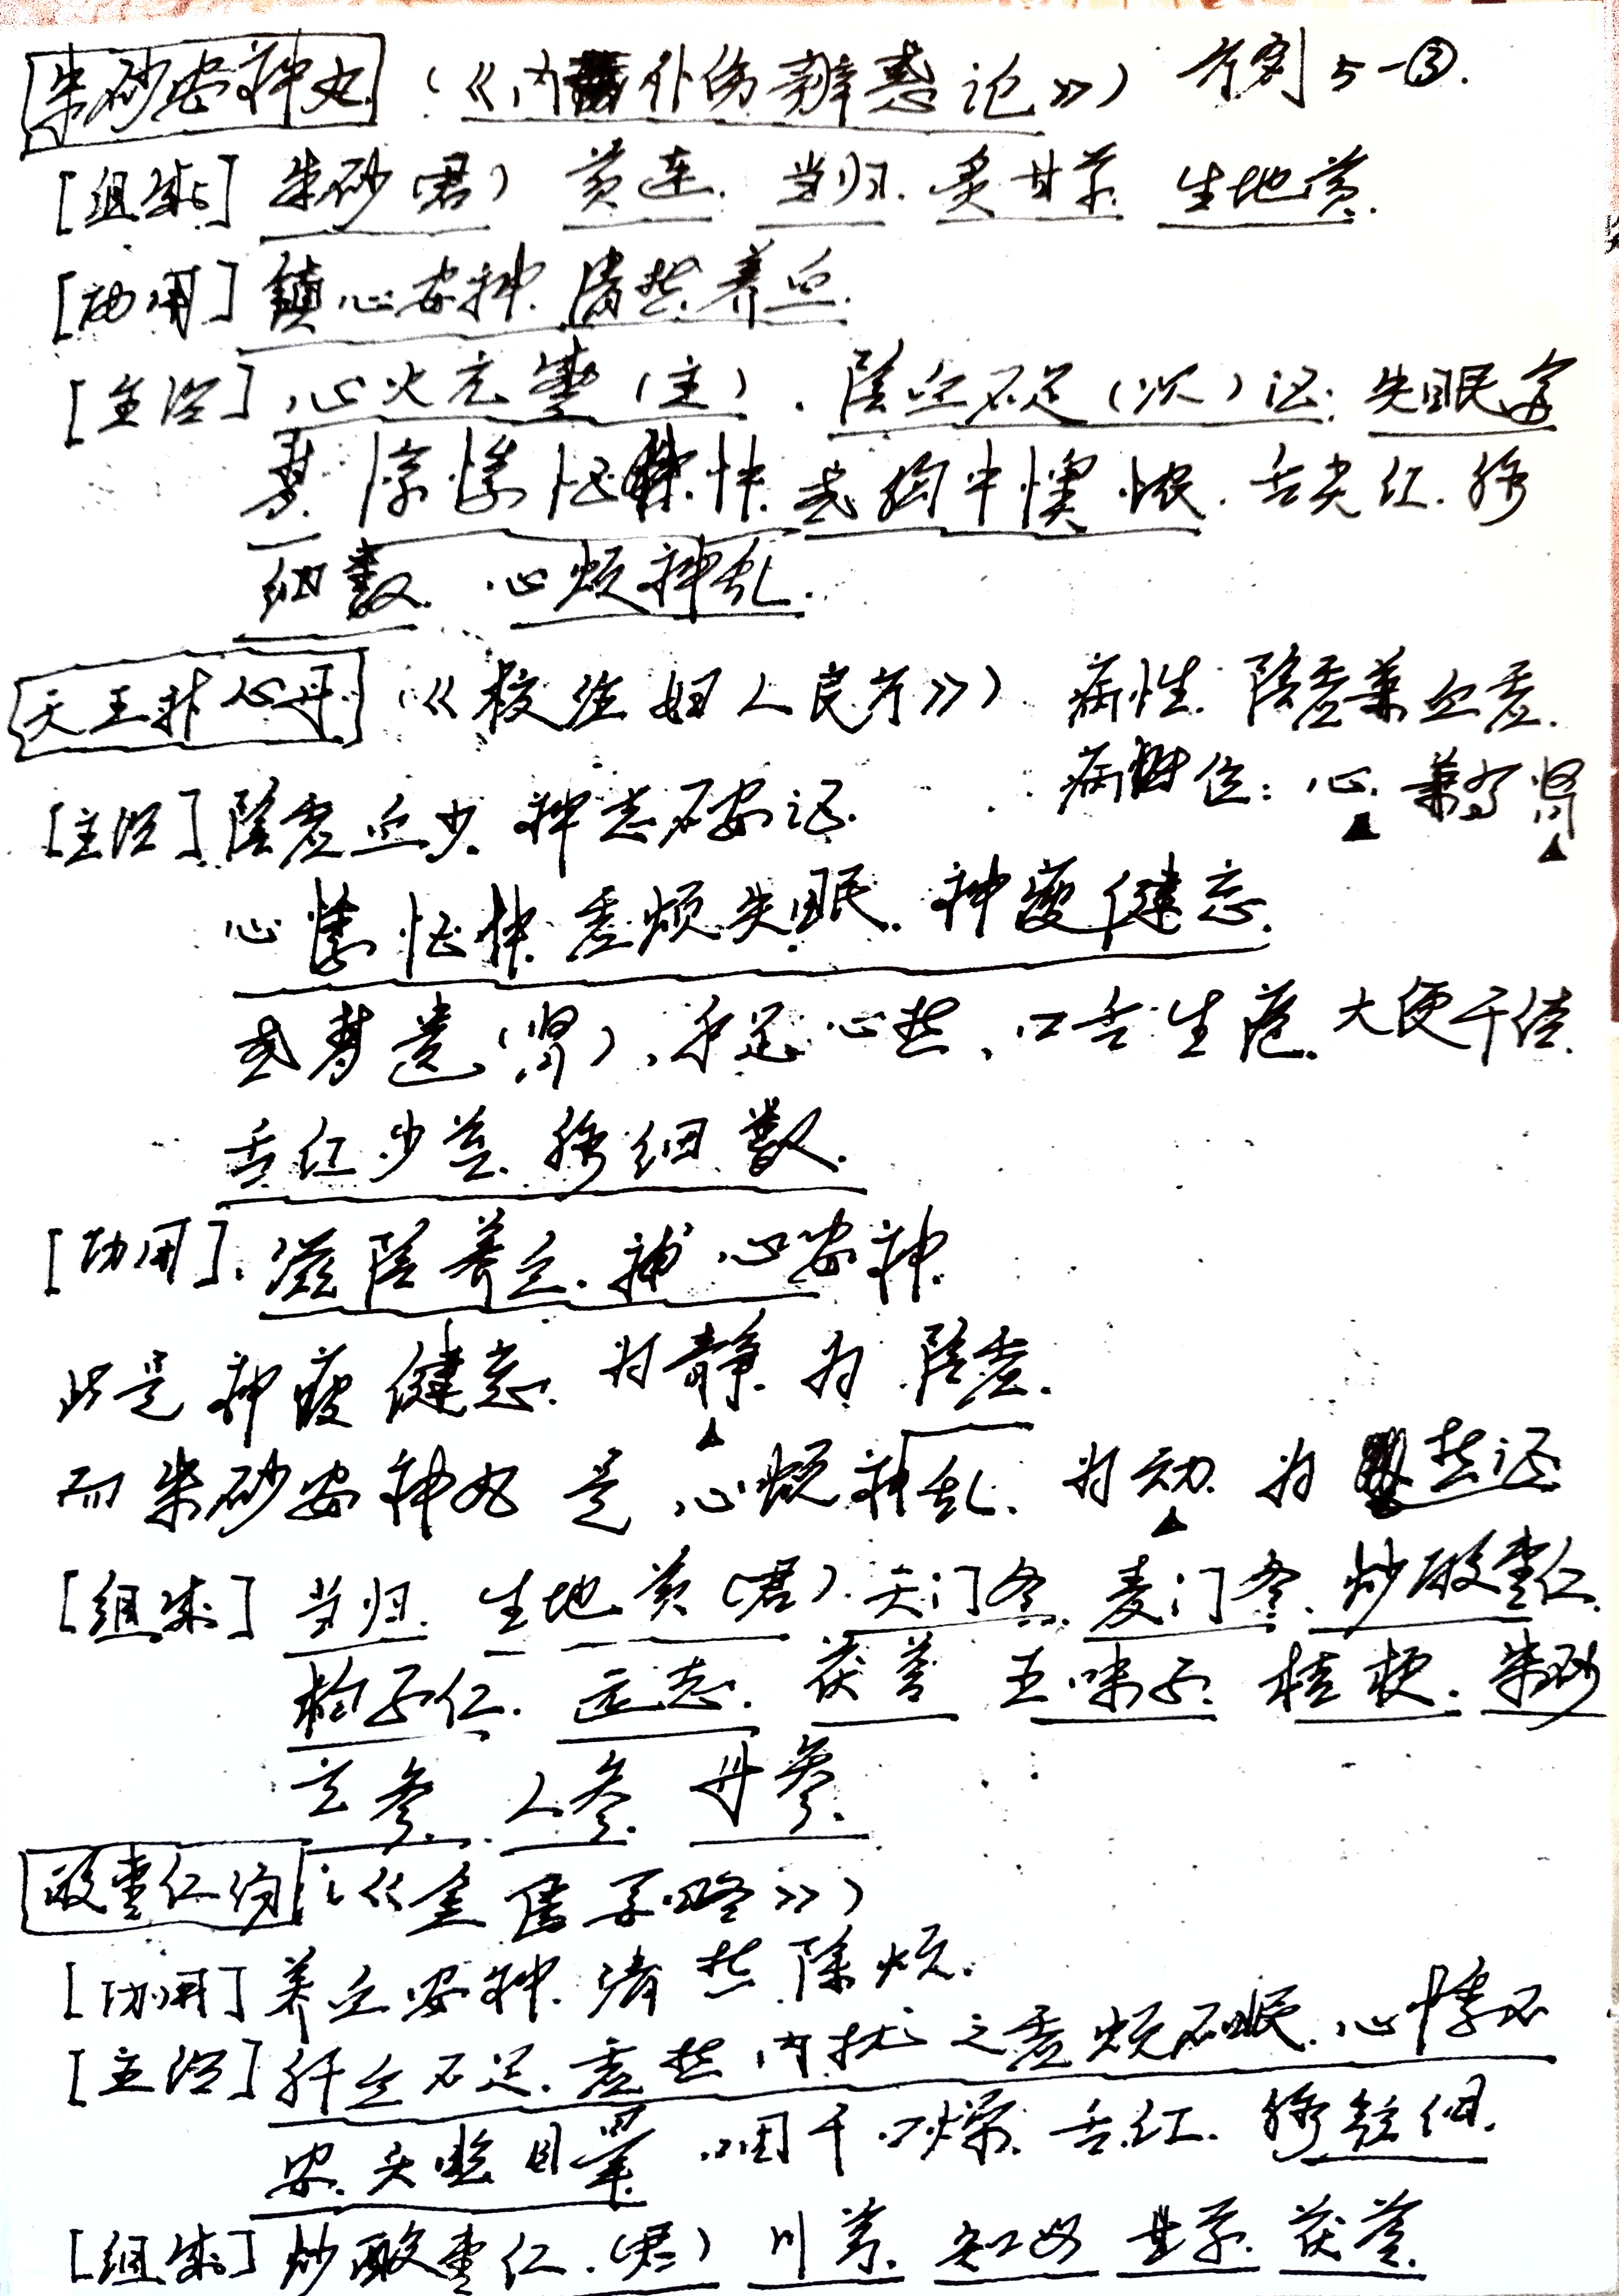 朱砂安神丸（《内外伤辨惑论》）方剂5-③.
[组成] 朱砂(君) 黄连. 当归. 炙甘草. 生地黄.
[功用] 镇心安神. 清热养血.
[主治] 心火亢盛(主). 阴血不足(次)证: 失眠多
梦. 惊悸怔忡. 或胸中懊憹. 舌尖红. 脉
细数. 心烦神乱.
天王补心丹（《校注妇人良方》） 病性. 阴虚兼血虚.
病位: 心. 兼及肾
[主治] 阴虚血少. 神志不安证.
心悸怔忡. 虚烦失眠. 神疲健忘.
或梦遗(肾)、手足心热、口舌生疮. 大便干结.
舌红少苔. 脉细数.
[功用]. 滋阴养血. 补心安神.
此是神疲健忘. 为静. 为阴虚.
而朱砂安神丸是心烦神乱. 为动. 为热证
[组成] 当归. 生地黄(君). 天门冬. 麦门冬. 炒酸枣仁.
柏子仁. 远志. 茯苓 五味子. 桔梗. 朱砂
玄参. 人参. 丹参.
酸枣仁汤（《金匮要略》）
[功用] 养血安神. 清热除烦.
[主治] 肝血不足. 虚热内扰之虚烦不眠. 心悸不
安. 头晕目眩. 咽干口燥. 舌红. 脉弦细.
[组成] 炒酸枣仁.(君) 川芎. 知母 甘草. 茯苓.